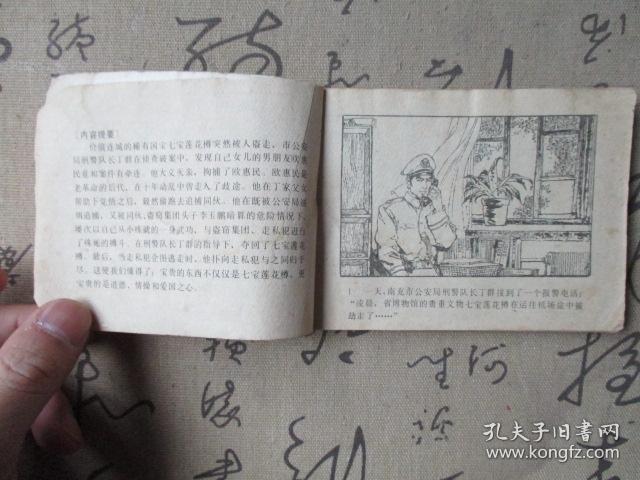 〔内容提要〕
价值连城的稀有国宝七宝莲花樽突然被人盗走，市公安
局刑警队长丁群在侦查破案中，发现自己女儿的男朋友欧惠
民竟和案件有牵连。他大义灭亲，拘捕了欧惠民。欧惠民是
老革命的后代，在十年动乱中曾走入了歧途。他在丁家父女
帮助下觉悟之后，毅然偷跑去追捕同伙。他在既被公安局通
缉追捕，又被同伙、盗窃集团头子李五鹏暗算的危险情况下，
屡次以自己从小练就的一身武功，与盗窃集团、走私犯进行
了殊死的搏斗。在刑警队长丁群的指导下，夺回了七宝莲花
樽。最后，当走私犯企图逃走时，他扑向走私犯与之同归于
尽。这使我们懂得了：宝贵的东西不仅仅是七宝莲花樽，更
宝贵的是道德、情操和爱国之心。
1 一天，南充市公安局刑警队长丁群接到了一个报警电话：
“凌晨，省博物馆的贵重文物七宝莲花樽在运往机场途中被
劫走了……”
孔夫子旧书网
kongfz.com